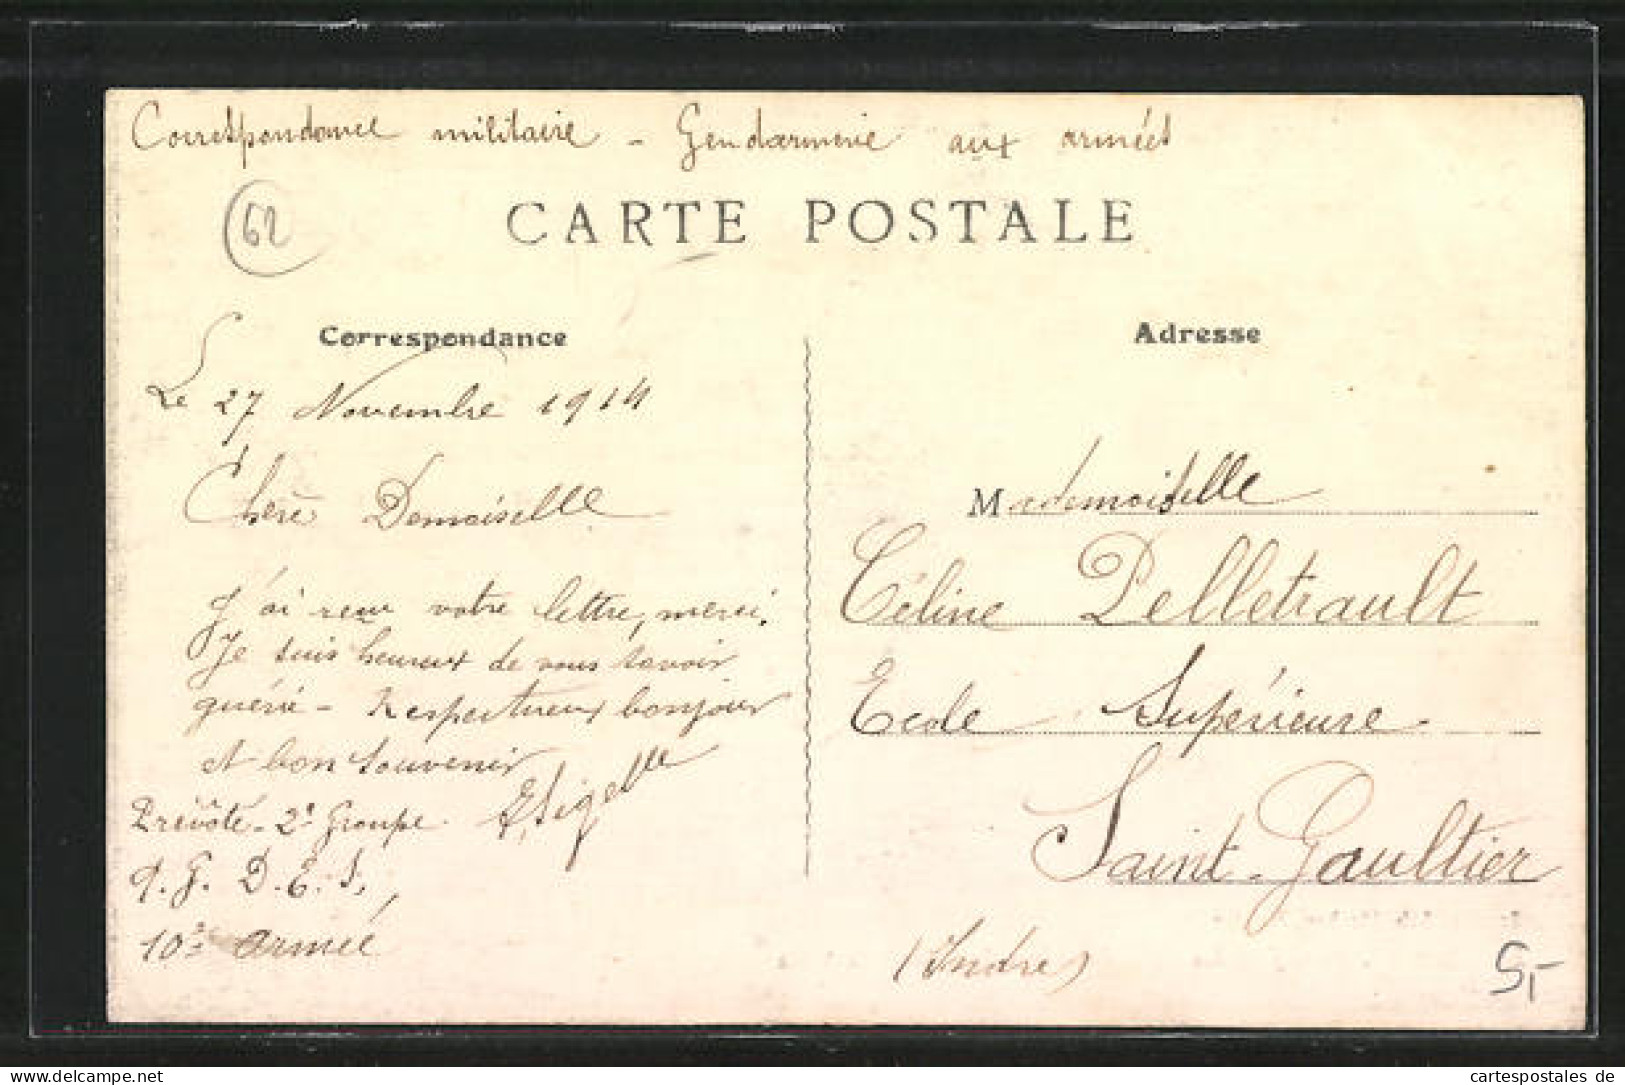 Correspondance militaire - Gendarmerie aux armées
62
CARTE POSTALE
Correspondance
Le 27 Novembre 1914
Chère Demoiselle
J'ai reçu votre lettre, merci.
Je suis heureux de vous savoir
guérie - Respectueux bonjour
et bon souvenir
Prévôté - 2e Groupe
G. D. E. S.
10e armée
Adresse
Mademoiselle
Céline Pelletrault
Ecole Supérieure
Saint-Gaultier
(Indre)
5,-
delcampe.net
cartespostales de